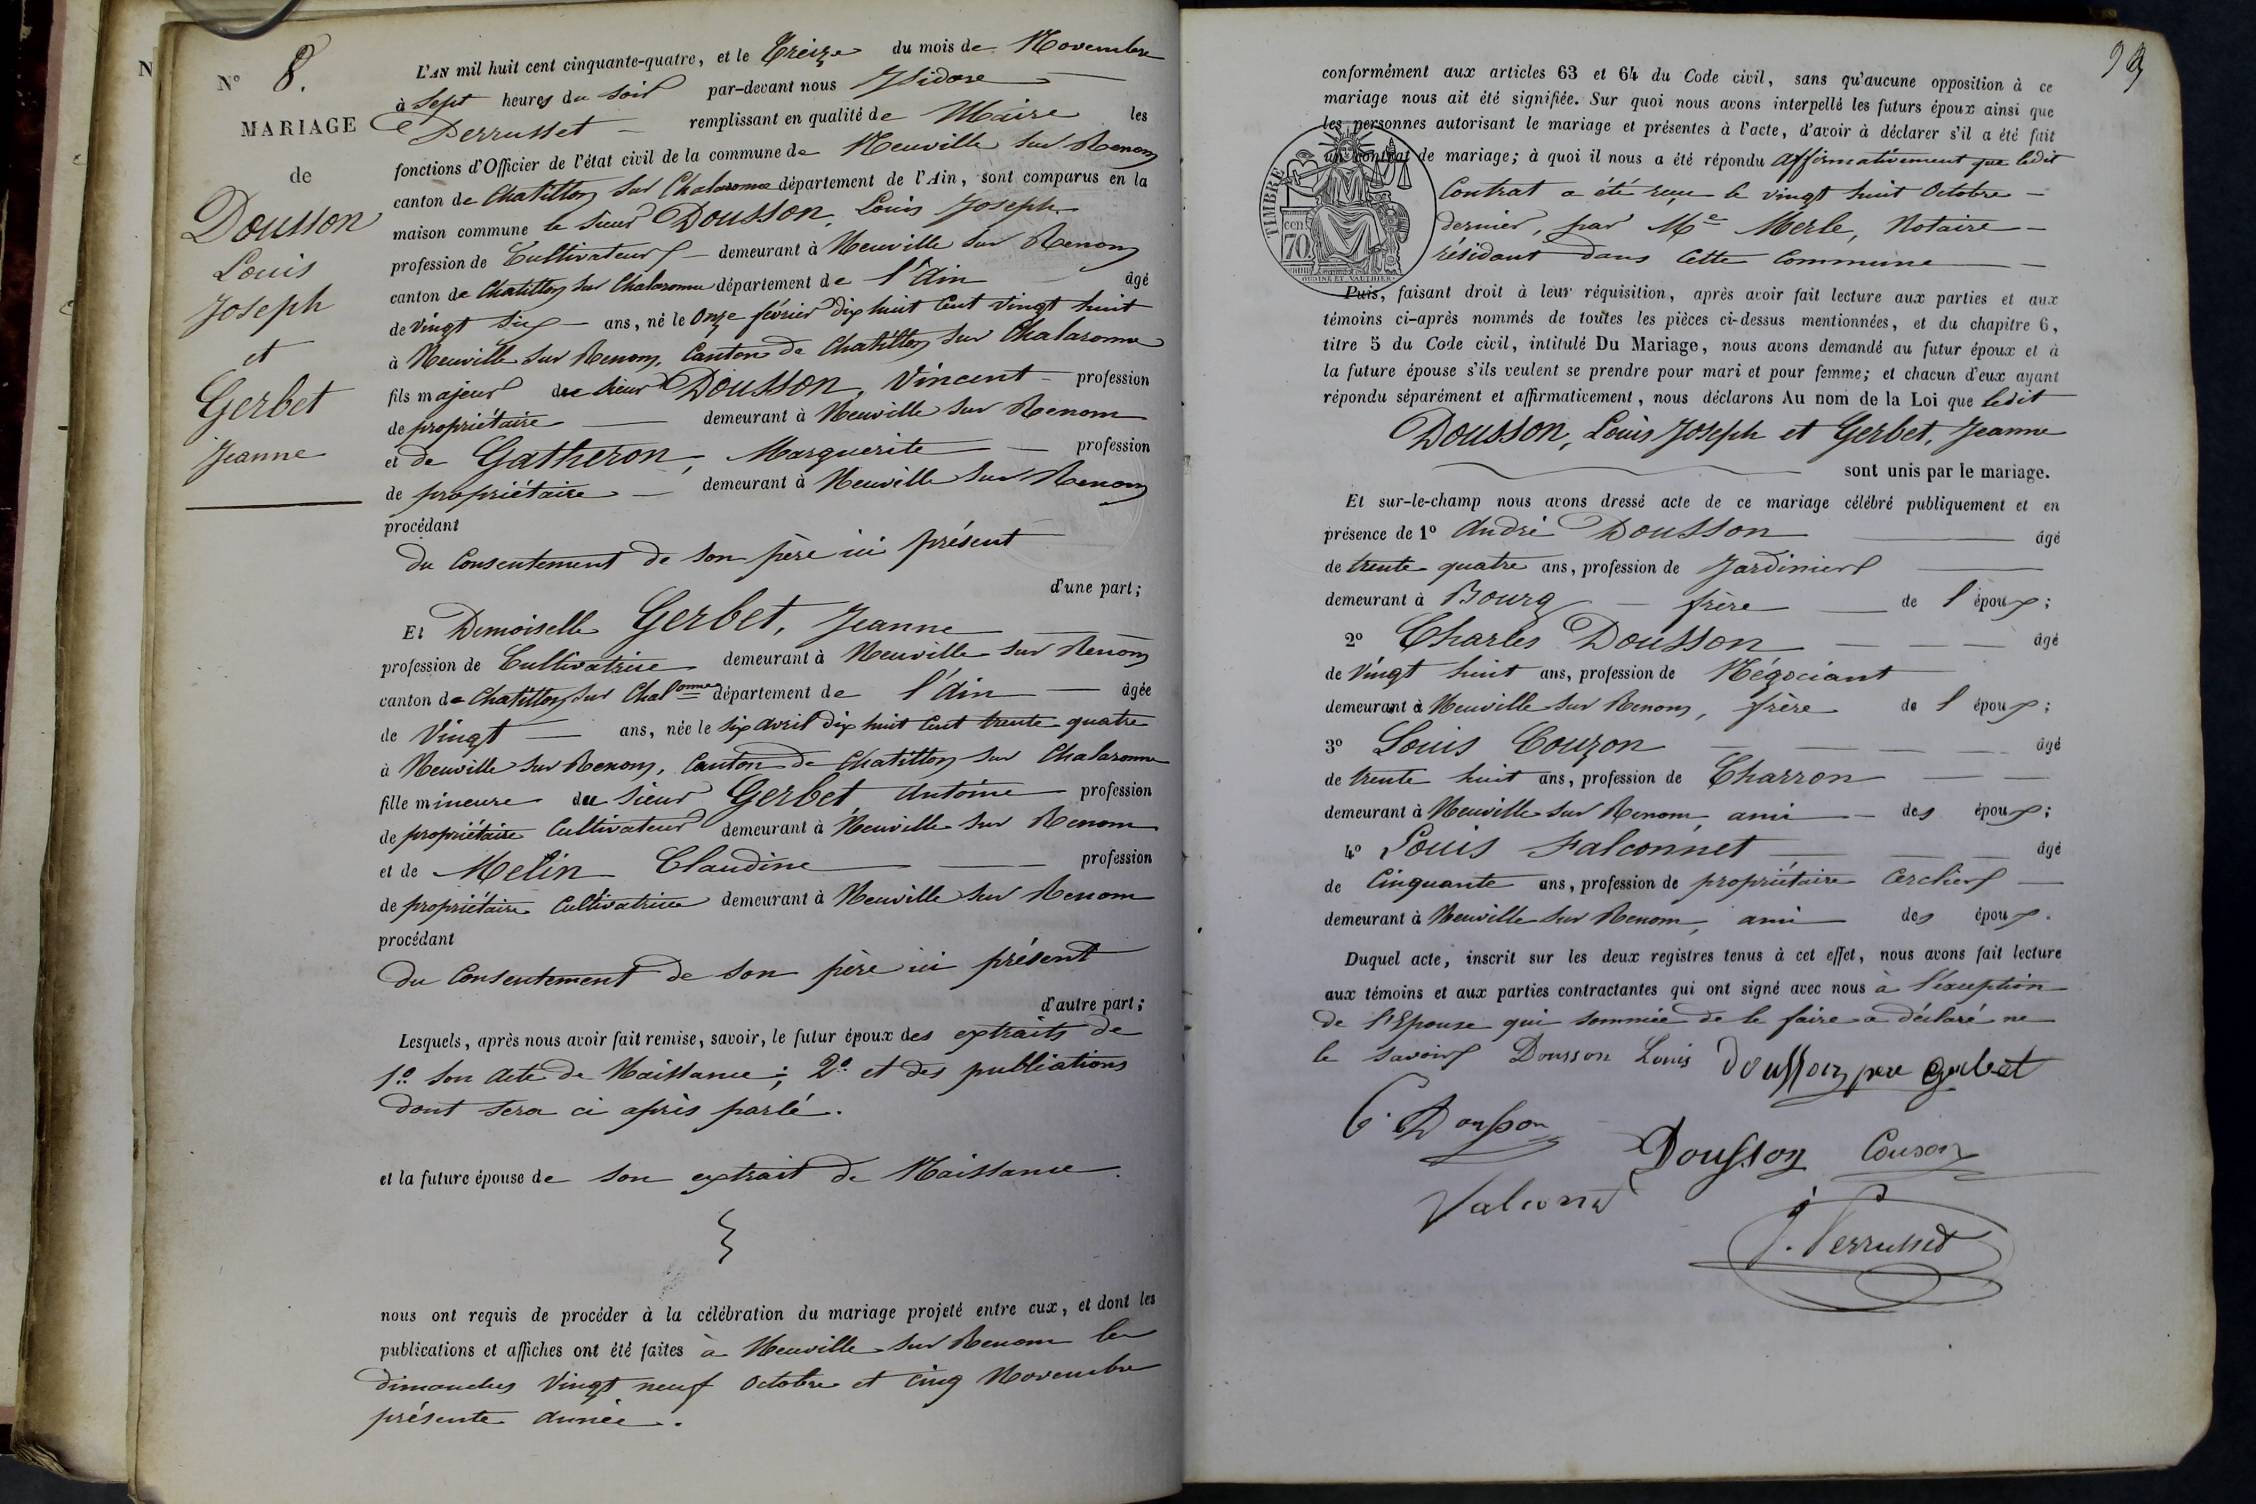 N
N° 8.
MARIAGE
de
Dousson
Louis
Joseph
et
Gerbet
Jeanne
L'AN mil huit cent cinquante-quatre, et le Treize du mois de Novembre
à Sept heures du soir par-devant nous Isidore
Perrusset remplissant en qualité de Maire les
fonctions d'Officier de l'état civil de la commune de Neuville sur Renom
canton de Chatillon sur Chalaronne département de l'Ain, sont comparus en la
maison commune le sieur Dousson, Louis Joseph
profession de Cultivateur demeurant à Neuville sur Renom
canton de Chatillon sur Chalaronne département de l'Ain âgé
de vingt six ans, né le Onze février dix huit Cent vingt huit
à Neuville sur Renom, Canton de Chatillon sur Chalaronne
fils majeur du sieur Dousson, Vincent profession
de propriétaire demeurant à Neuville sur Renom
et de Gatheron, Marguerite profession
de propriétaire demeurant à Neuville sur Renom
procédant
du Consentement de son père ici présent
d'une part;
Et Demoiselle Gerbet, Jeanne
profession de Cultivatrice demeurant à Neuville sur Renom
canton de Chatillon sur Chalonne département de l'Ain âgée
de Vingt ans, née le six avril dix huit Cent trente quatre
à Neuville sur Renom, Canton de Chatillon sur Chalaronne
fille mineure du sieur Gerbet Antoine profession
de propriétaire Cultivateur demeurant à Neuville sur Renom
et de Melin Claudine profession
de propriétaire Cultivatrice demeurant à Neuville sur Renom
procédant
du Consentement de son père ici présent
d'autre part;
Lesquels, après nous avoir fait remise, savoir, le futur époux des extraits de
1° son acte de Naissance; 2° et des publications
dont sera ci après parlé.
et la future épouse de son extrait de Naissance.
nous ont requis de procéder à la célébration du mariage projeté entre eux, et dont les
publications et affiches ont été faites à Neuville sur Renom les
dimanches Vingt neuf Octobre et Cinq Novembre
présente année.
conformément aux articles 63 et 64 du Code civil, sans qu'aucune opposition à ce
mariage nous ait été signifiée. Sur quoi nous avons interpellé les futurs époux ainsi que
les personnes autorisant le mariage et présentes à l'acte, d'avoir à déclarer s'il a été fait
un contrat de mariage; à quoi il nous a été répondu affirmativement que ledit
Contrat a été reçu le vingt huit Octobre
dernier, par Me Merle, Notaire
résidant dans Cette Commune
TIMBRE
cen.
70.
OUDINÉ ET VAUTHIER
Puis, faisant droit à leur réquisition, après avoir fait lecture aux parties et aux
témoins ci-après nommés de toutes les pièces ci-dessus mentionnées, et du chapitre 6,
titre 5 du Code civil, intitulé Du Mariage, nous avons demandé au futur époux et à
la future épouse s'ils veulent se prendre pour mari et pour femme; et chacun d'eux ayant
répondu séparément et affirmativement, nous déclarons Au nom de la Loi que ledit
Dousson, Louis Joseph et Gerbet, Jeanne
sont unis par le mariage.
Et sur-le-champ nous avons dressé acte de ce mariage célébré publiquement et en
présence de 1° André Dousson âgé
de trente quatre ans, profession de Jardinier
demeurant à Bourg frère de l'époux;
2° Charles Dousson âgé
de Vingt huit ans, profession de Négociant
demeurant à Neuville sur Renom, frère de l'époux;
3° Louis Couzon âgé
de trente huit ans, profession de Charron
demeurant à Neuville sur Renom, ami des époux;
4° Louis Falconnet âgé
de Cinquante ans, profession de propriétaire Cerclier
demeurant à Neuville sur Renom, ami des époux.
Duquel acte, inscrit sur les deux registres tenus à cet effet, nous avons fait lecture
aux témoins et aux parties contractantes qui ont signé avec nous à l'exception
de l'Epouse qui sommée de le faire a déclaré ne
le savoir Dousson Louis Dousson père Gerbet
C. Dousson
Dousson Couson
Falconet
J. Perrusset